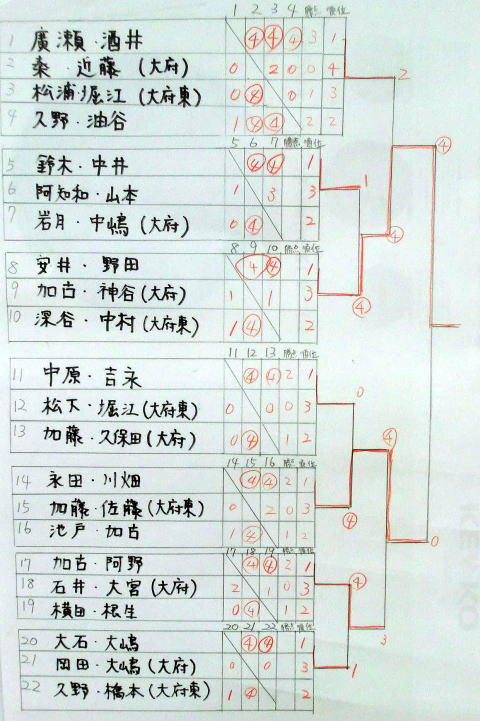 1 2 3 4 勝点 順位
1 廣瀬・酒井 ④ ④ ④ 3 1
2 桒・近藤(大府) 0 2 0 0 4
3 松浦・堀江(大府東) 0 ④ 0 1 3
4 久野・油谷 1 ④ ④ 2 2
5 6 7 勝点 順位
5 鈴木・中井 ④ ④ 1
6 阿知和・山本 1 3 3
7 岩月・中嶋(大府) 0 ④ 2
8 9 10 勝点 順位
8 安井・野田 4 ④ 1
9 加古・神谷(大府) 1 1 3
10 深谷・中村(大府東) 1 ④ 2
11 12 13 勝点 順位
11 中原・吉永 ④ ④ 2 1
12 松下・堀江(大府東) 0 0 0 3
13 加藤・久保田(大府) 0 ④ 1 2
14 15 16 勝点 順位
14 永田・川畑 ④ ④ 2 1
15 加藤・佐藤(大府東) 0 2 0 3
16 池戸・加古 1 ④ 1 2
17 18 19 勝点 順位
17 加古・阿野 ④ ④ 2 1
18 石井・大宮(大府) 2 1 0 3
19 横田・根生 0 ④ 1 2
20 21 22 勝点 順位
20 大石・大嶋 ④ ④ 1
21 岡田・大嶋(大府) 0 0 3
22 久野・橋本(大府東) 1 ④ 2
2
④
1
④
④
0
④
④
0
④
3
1